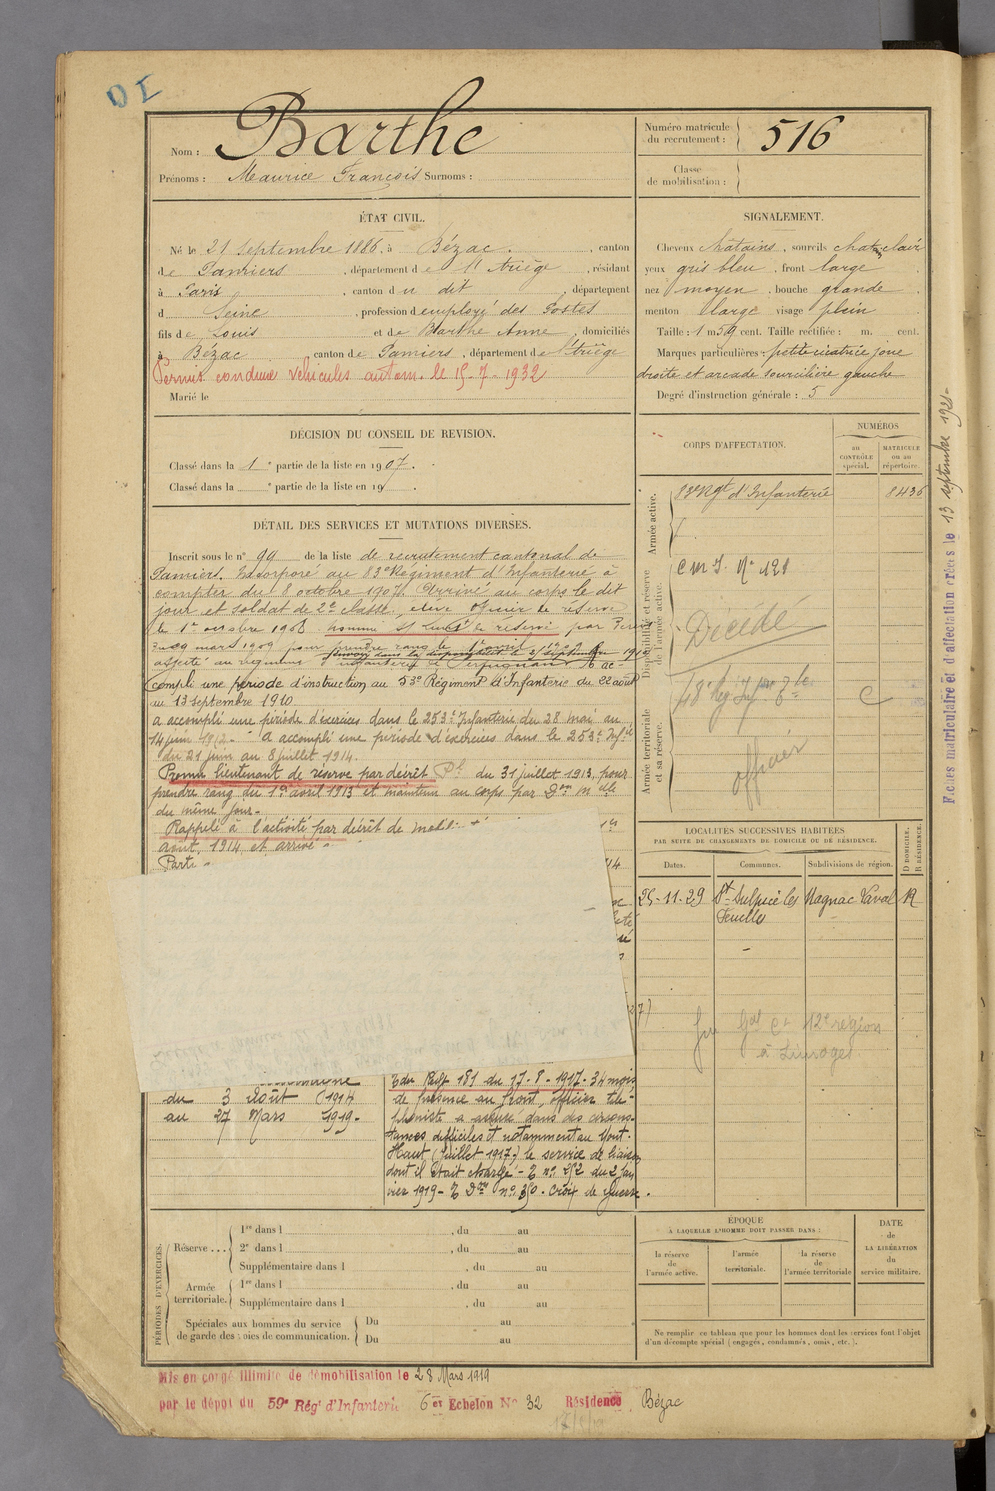 Nom : Barthe
Prénoms : Maurice François Surnoms :
Numéro matricule du recrutement : 516
Classe de mobilisation :
ÉTAT CIVIL.
Né le 21 Septembre 1886, à Bézac, canton
de Pamiers, département de l'Ariège, résidant
à Paris, canton du dit, département
d Seine, profession d employé des Postes
fils de Louis et de Barthe Anne, domiciliés
à Bézac canton de Pamiers, département de l'Ariège
Permis conduire véhicules autom. le 15-7-1932
Marié le
SIGNALEMENT.
Cheveux chatains, sourcils chat. clair
yeux gris bleu, front large
nez moyen, bouche grande
menton large visage plein
Taille : 1 m 59 cent. Taille rectifiée : m. cent.
Marques particulières : petite cicatrice joue
droite et arcade sourcilière gauche
Degré d'instruction générale : 5
DÉCISION DU CONSEIL DE REVISION.
Classé dans la 1 e partie de la liste en 1907.
Classé dans la e partie de la liste en 19 .
CORPS D'AFFECTATION.
NUMÉROS
au CONTRÔLE spécial.
MATRICULE ou au répertoire.
Armée active.
83e Rgt d'Infanterie 8436
Disponibilité et réserve de l'armée active.
C M I. No 121
Décédé
Armée territoriale et sa réserve.
C
officier
DÉTAIL DES SERVICES ET MUTATIONS DIVERSES.
Inscrit sous le no 99 de la liste de recrutement cantonal de
Pamiers. Incorporé au 83e Régiment d'Infanterie à
compter du 8 octobre 1907. Arrivé au corps le dit
jour et soldat de 2e classe, élève officier de réserve
le 1er octobre 1908 nommé s/ Lieut de réserve par
mars 1909 pour prendre rang le
affecté au régiment d'infanterie de Perpignan A ac-
compli une période d'instruction au 53e Régiment d'Infanterie du 22 août
au 13 septembre 1910
a accompli une période d'exercices dans le 253e Infanterie du 28 mai au
14 juin 1912. - A accompli une période d'exercices dans le 253e Infrie
du 21 juin au 8 juillet 1914.
Promu lieutenant de réserve par décrêt du 31 juillet 1913, pour
prendre rang du 1er avril 1913 et maintenu au corps par Don Mlle
du même jour.-
Rappelé à l'activité par décrêt de mob
août 1914 et arrivé
Parti
du 3 Août 1914
au 27 Mars 1919-
du Regt 181 du 17-8-1917- 34 mois
de présence au front, officier télé-
phoniste a assuré dans des circons-
tances difficiles et notamment au Mont-
Haut (juillet 1917) le service de liaison
dont il était chargé -
vier 1919 - Croix de guerre.
LOCALITÉS SUCCESSIVES HABITÉES
PAR SUITE DE CHANGEMENTS DE DOMICILE OU DE RÉSIDENCE.
Dates. Communes. Subdivisions de région. D DOMICILE. R RÉSIDENCE.
25-11-29 St Sulpice les Feuilles Magnac Laval R
12e région
à Limoges
PÉRIODES D'EXERCICES.
Réserve ... 1re dans l , du au
2e dans l , du au
Supplémentaire dans l , du au
Armée territoriale. 1re dans l , du au
Supplémentaire dans l , du au
Spéciales aux hommes du service de garde des voies de communication. Du au
Du au
ÉPOQUE
À LAQUELLE L'HOMME DOIT PASSER DANS :
la réserve de l'armée active.
l'armée territoriale.
la réserve de l'armée territoriale
DATE de LA LIBÉRATION du service militaire.
Ne remplir ce tableau que pour les hommes dont les services font l'objet
d'un décompte spécial (engagés, condamnés, omis, etc.).
Mis en congé illimité de démobilisation le 28 Mars 1919
par le dépôt du 59e Régt d'Infanterie 6e Echelon No 32 Résidence Bézac
Fiches matriculaire et d'affectation créées le 13 septembre 1921-